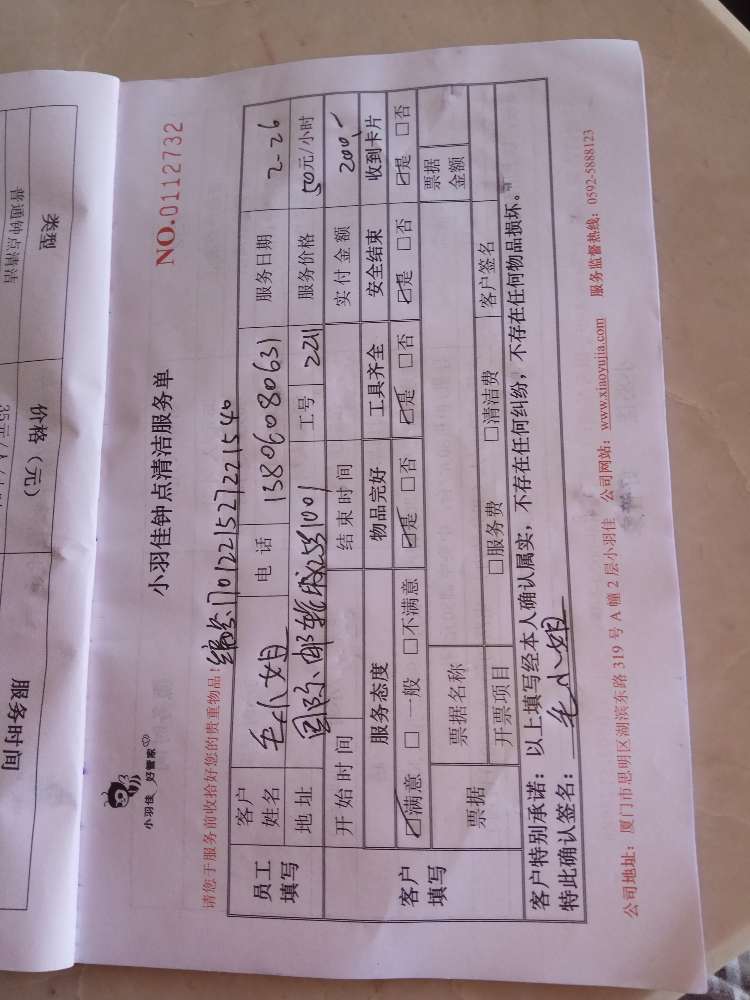 类型
价格（元）
服务时间
普通钟点清洁
小羽佳 好管家
小羽佳钟点清洁服务单
NO.0112732
请您于服务前收拾好您的贵重物品！
编号:1701221527221540
员工填写
客户姓名 毛小姐 电话 13806080631 服务日期 2-26
地址 工号 2211 服务价格 50元/小时
客户填写
开始时间 结束时间 实付金额 200.-
服务态度 物品完好 工具齐全 安全结束 收到卡片
☑满意 □一般 □不满意 ☑是 □否 ☑是 □否 ☑是 □否 ☑是 □否
票据 票据名称 票据金额
开票项目 □服务费 □清洁费 客户签名
客户特别承诺：以上填写经本人确认属实，不存在任何纠纷，不存在任何物品损坏。
特此确认签名：毛小姐
公司地址：厦门市思明区湖滨东路 319 号 A 幢 2 层小羽佳 公司网站：www.xiaoyujia.com 服务监督热线：0592-5888123